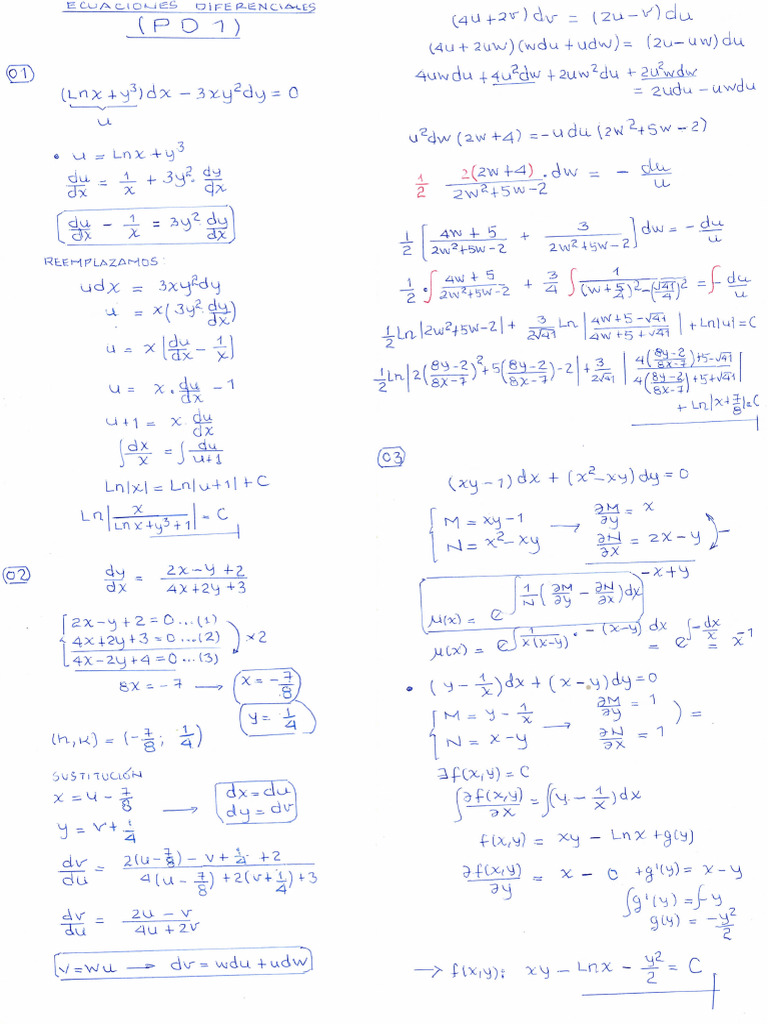 ECUACIONES DIFERENCIALES
(PD1)
01
(Lnx + y³)dx − 3xy²dy = 0
u
• u = Lnx + y³
du/dx = 1/x + 3y². dy/dx
du/dx − 1/x = 3y² dy/dx
REEMPLAZAMOS:
udx = 3xy²dy
u = x(3y². dy/dx)
u = x[du/dx − 1/x]
u = x. du/dx − 1
u+1 = x. du/dx
∫dx/x = ∫du/u+1
Ln|x| = Ln|u+1| + C
Ln|x/(Lnx+y³+1)| = C
02
dy/dx = (2x − y + 2)/(4x + 2y + 3)
2x − y + 2 = 0 ...(1)
4x + 2y + 3 = 0 ...(2) ) ×2
4x − 2y + 4 = 0 ...(3)
8x = −7 → x = −7/8
y = 1/4
(h,k) = (−7/8 ; 1/4)
SUSTITUCIÓN
x = u − 7/8 → dx = du
y = v + 1/4 dy = dv
dv/du = (2(u − 7/8) − v + 1/4 + 2)/(4(u − 7/8) + 2(v + 1/4) + 3)
dv/du = (2u − v)/(4u + 2v)
v = wu → dv = wdu + udw
(4u + 2v)dv = (2u − v)du
(4u + 2uw)(wdu + udw) = (2u − uw)du
4uwdu + 4u²dw + 2uw²du + 2u²wdw
= 2udu − uwdu
u²dw(2w+4) = −udu(2w² + 5w − 2)
1/2 2(2w+4)/(2w²+5w−2) . dw = − du/u
1/2 [(4w + 5)/(2w²+5w−2) + 3/(2w²+5w−2)]dw = −du/u
1/2 . ∫(4w + 5)/(2w²+5w−2) + 3/4 ∫1/((w+5/4)²−(√41/4)²) = ∫−du/u
1/2 Ln|2w²+5w−2| + 3/(2√41) Ln|(4w+5−√41)/(4w+5+√41)| + Ln|u| = C
1/2 Ln|2((8y−2)/(8x−7))² + 5((8y−2)/(8x−7)) − 2| + 3/(2√41) |(4((8y−2)/(8x−7))+5−√41)/(4((8y−2)/(8x−7))+5+√41)|
+ Ln|x+7/8| = C
03
(xy − 1)dx + (x² − xy)dy = 0
M = xy − 1 → ∂M/∂y = x
N = x² − xy ∂N/∂x = 2x − y ) −
−x + y
μ(x) = e^∫1/N(∂M/∂y − ∂N/∂x)dx
μ(x) = e^∫1/(x(x−y)) . −(x−y) dx = e^∫−dx/x = x⁻¹
• (y − 1/x)dx + (x − y)dy = 0
M = y − 1/x → ∂M/∂y = 1
N = x − y ∂N/∂x = 1 ) =
∃f(x,y) = C
∫∂f(x,y)/∂x = ∫(y − 1/x)dx
f(x,y) = xy − Lnx + g(y)
∂f(x,y)/∂y = x − 0 + g'(y) = x − y
∫g'(y) = ∫−y
g(y) = −y²/2
→ f(x,y): xy − Lnx − y²/2 = C